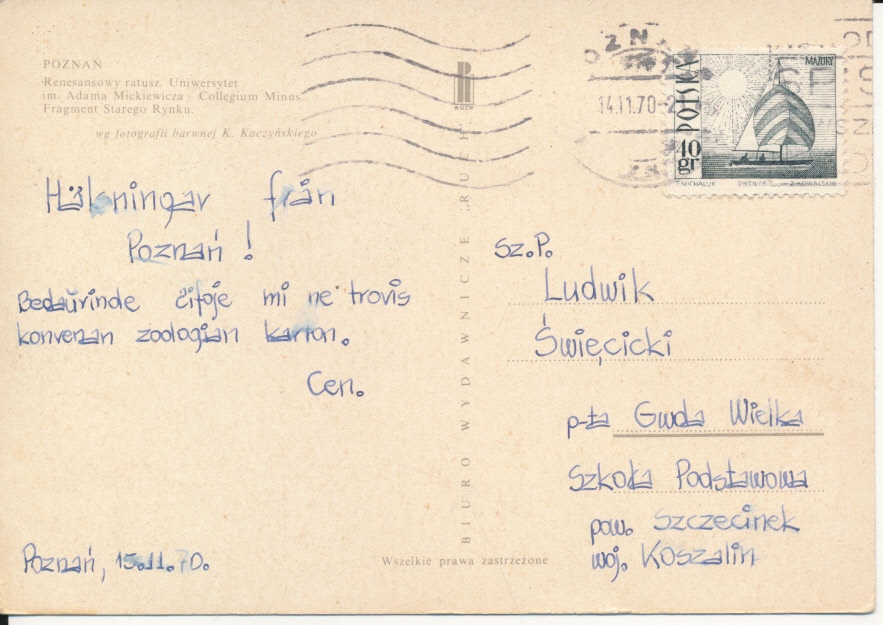 POZNAŃ
Renesansowy ratusz. Uniwersytet
im. Adama Mickiewicza - Collegium Minus.
Fragment Starego Rynku.
wg fotografii barwnej K. Kaczyńskiego
Hälsningar från
Poznań!
Bedaŭrinde ĉifoje mi ne trovis
konvenan zoologian karton.
Cen.
Poznań, 15.11.70.
BIURO WYDAWNICZE „RUCH"
RUCH
Wszelkie prawa zastrzeżone
14.11.70-2
POLSKA
MAZURY
40 gr
F. MICHALUK
PWPW 66
Z. KOWALSKI
Sz. P.
Ludwik
Święcicki
p-ta Gwda Wielka
Szkoła Podstawowa
pow. Szczecinek
woj. Koszalin